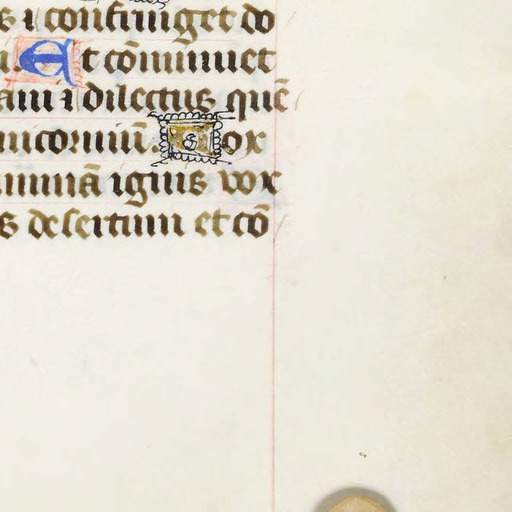 s ⁊ confringet do
Et cōminuet
am ⁊ dilectus quē
nicorniū. Vox
mmā ignis vox
s desertum et cō